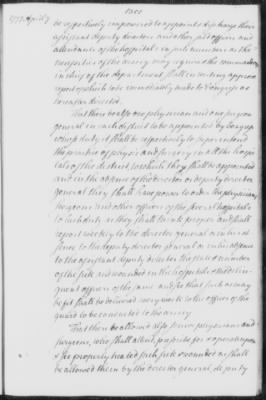 1777 April 7
be respectively impowered to appoint & discharge their
assistant deputy directors and other sub officers and
attendants of the hospitals in such number as the
necessities of the army may require & the commander
in chief of the department shall in writing approve
report of which to be immediately made to Congress as
heretofore directed.
That there be also one physician and one surgeon
general in each district to be appointed by Congress
whose duty it shall be respectively to superintend
the practice of physic and surgery in all the hospi
tals of the district, to which they shall be appointed
and in the absence of the director or deputy director
general they shall have power to order the physicians
surgeons and other officers of the several hospitals
to such duty as they shall think proper and shall
report weekly to the director general or in his ab
sence to the deputy director general or in his absence
to the assistant deputy director the state & number
of the sick and wounded in the hospitals & the delin
quent officers of the same and see that such as may
be fit shall be delivered every week to the officer of the
guard to be conducted to the army
That there be allowed also senior physicians and
surgeons, who shall attend, prescribe for & operate upon
& see properly treated such sick & wounded as shall
be allotted them by the director general, deputy